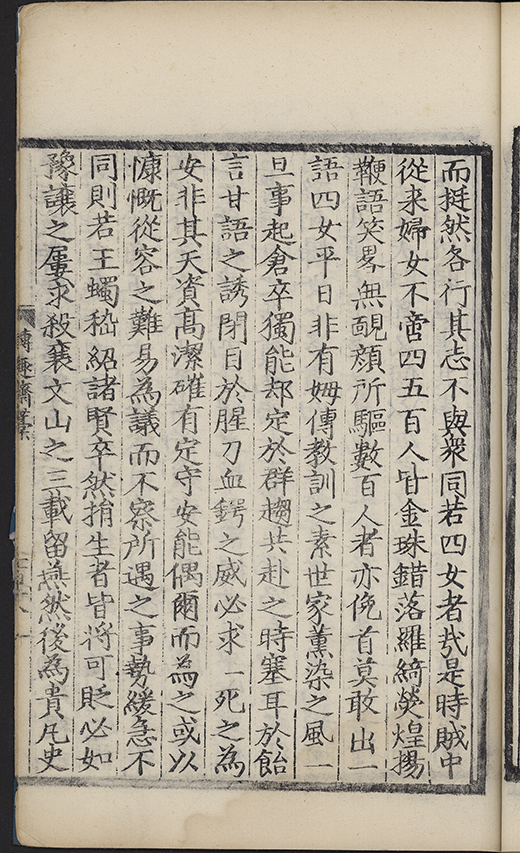 而挺然各行其志不與衆同若四女者㦲是時賊中
從来婦女不啻四五百人皆金珠錯落羅綺熒煌揚
鞭語笑畧無靦顔所驅數百人者亦俛首莫敢出一
語四女平日非有姆傳教訓之素世家薰染之風一
旦事起倉卒獨能却定於群趨共赴之時塞耳於飴
言甘語之誘閉目於腥刀血鍔之威必求一死之為
安非其天資髙潔確有定守安能偶爾而為之或以
慷慨從容之難易為議而不察所遇之事勢緩急不
同則若王蠋嵇紹諸賢卒然捐生者皆將可貶必如
豫讓之屢求殺襄文山之三載留燕然後為貴凡史